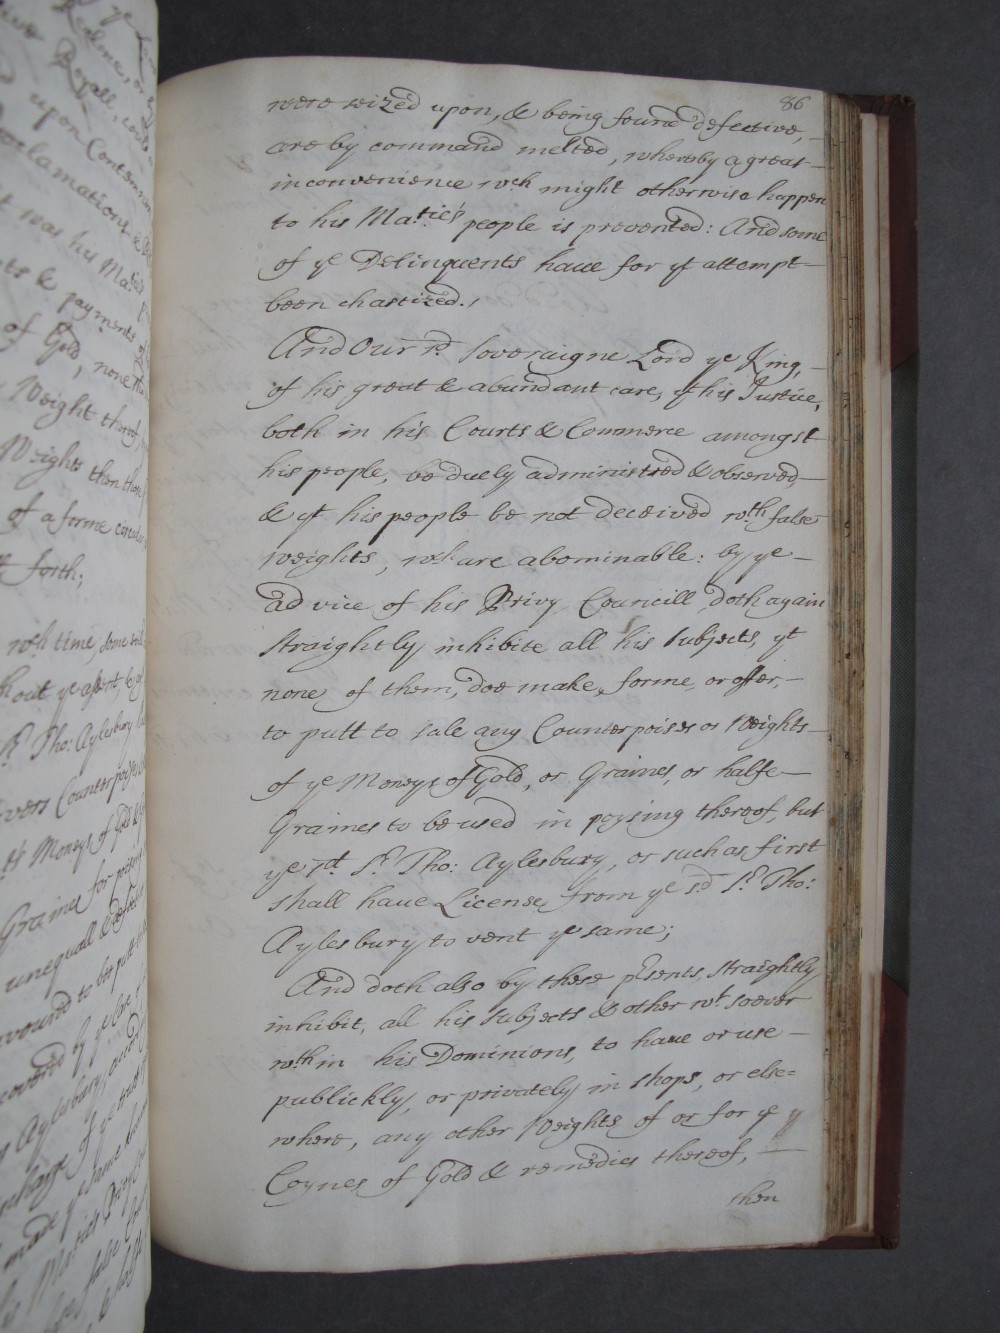 86
were seized upon, & being found defective,
are by command melted, whereby a great
inconvenience wch might otherwise happen
to his Maties people is prevented: And some
of ye Delinquents haue for yt attempt
been chastized.
And Our sd Soveraigne Lord ye King,
of his great & abundant care, yt his Justice,
both in his Courts & Commerce amongst
his people, be duely administred & observed,
& yt his people be not deceived wth false
Weights, wch are abominable: by ye
advice of his Privy Councill doth again
straightly inhibite all his Subjects, yt
none of them, doe make, forme, or offer,
to putt to sale any Counterpoises or Weights
of ye Moneys of Gold, or Graines, or halfe
Graines to be used in poysing thereof, but
ye sd Sr. Tho: Aylesbury, or such as first
shall haue License from ye sd Sr. Tho:
Aylesbury to vent ye same;
And doth also by these psents, straightly
inhibit, all his Subjects & other wt soever
wthin his Dominions, to haue or use
publickly, or privately in shops, or else=
where, any other Weights of or for ye
Coynes of Gold & remedies thereof,
then
upon Contemn
oclamations &
t was his Maties
& payments of
of Gold, none
Weight thereof
Weights then
of a forme
forth;
wch time, some
hout ye assent, &
Sr. Tho: Aylesbury
Counterpoises
Moneys of Gold &
Graines for poising
unequall & defec
to bee putt
by ye care of
Aylesbury,
charge of ye
made ye same
Maties Privy
false
& halfe